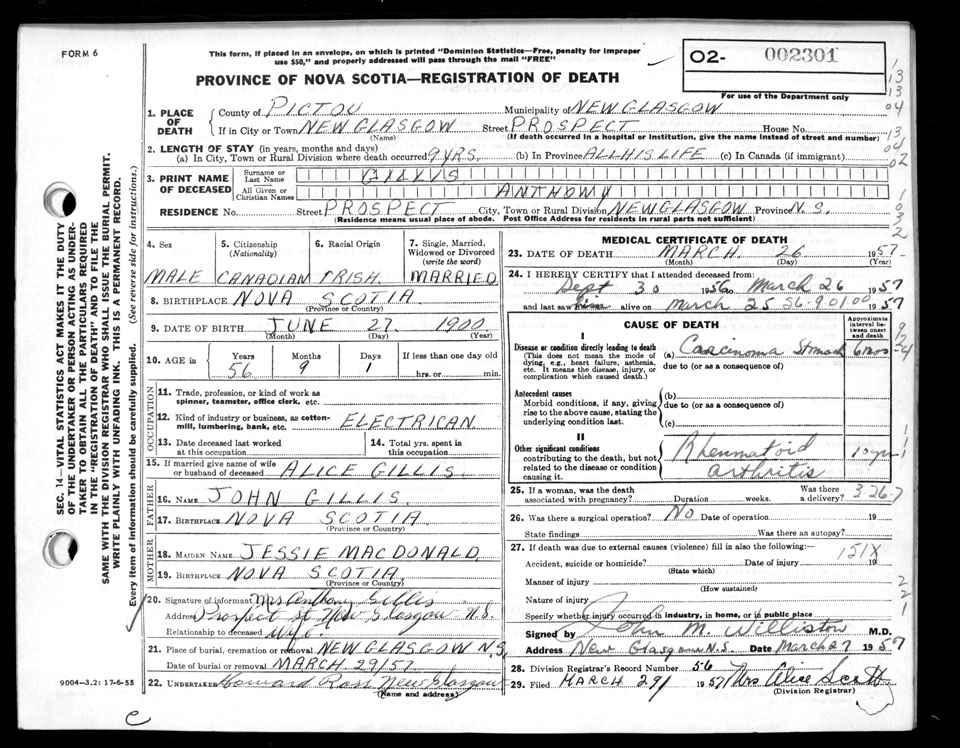 FORM 6
This form, if placed in an envelope, on which is printed "Dominion Statistics—Free, penalty for improper
use $50," and properly addressed will pass through the mail "FREE"
PROVINCE OF NOVA SCOTIA—REGISTRATION OF DEATH
02- 002301
For use of the Department only
1. PLACE OF DEATH
County of PICTOU Municipality of NEW GLASGOW
If in City or Town NEW GLASGOW Street PROSPECT House No.
(Name) (If death occurred in a hospital or institution, give the name instead of street and number)
2. LENGTH OF STAY (in years, months and days)
(a) In City, Town or Rural Division where death occurred 9 YRS. (b) In Province ALL HIS LIFE (c) In Canada (if immigrant)
3. PRINT NAME OF DECEASED
Surname or Last Name GILLIS
All Given or Christian Names ANTHONY
RESIDENCE No. Street PROSPECT City, Town or Rural Division NEW GLASGOW Province N. S.
(Residence means usual place of abode. Post Office Address for residents in rural parts not sufficient)
1
13
13
04
13
04
02
1
0
3
2
SEC. 14—VITAL STATISTICS ACT MAKES IT THE DUTY
OF THE UNDERTAKER OR PERSON ACTING AS UNDER-
TAKER TO OBTAIN ALL THE PARTICULARS REQUIRED
IN THE "REGISTRATION OF DEATH" AND TO FILE THE
SAME WITH THE DIVISION REGISTRAR WHO SHALL ISSUE THE BURIAL PERMIT.
WRITE PLAINLY WITH UNFADING INK. THIS IS A PERMANENT RECORD.
Every item of information should be carefully supplied. (See reverse side for instructions.)
4. Sex 5. Citizenship (Nationality) 6. Racial Origin 7. Single, Married, Widowed or Divorced (write the word)
MALE CANADIAN IRISH MARRIED
8. BIRTHPLACE NOVA SCOTIA
(Province or Country)
9. DATE OF BIRTH JUNE 27. 1900
(Month) (Day) (Year)
10. AGE in Years Months Days If less than one day old
56 9 1 hrs. or min.
OCCUPATION
11. Trade, profession, or kind of work as
spinner, teamster, office clerk, etc.
12. Kind of industry or business, as cotton-
mill, lumbering, bank, etc. ELECTRICAN
13. Date deceased last worked
at this occupation
14. Total yrs. spent in
this occupation
15. If married give name of wife
or husband of deceased ALICE GILLIS.
FATHER
16. NAME JOHN GILLIS.
17. BIRTHPLACE NOVA SCOTIA
(Province or Country)
MOTHER
18. MAIDEN NAME JESSIE MACDONALD
19. BIRTHPLACE NOVA SCOTIA.
(Province or Country)
20. Signature of informant Mrs Anthony Gillis
Address Prospect St New Glasgow N.S.
Relationship to deceased Wife.
21. Place of burial, cremation or removal NEW GLASGOW N.S,
Date of burial or removal MARCH 29/57
22. UNDERTAKER Howard Ross New Glasgow
(Name and address)
9004—3,2: 17-6-55
C
MEDICAL CERTIFICATE OF DEATH
23. DATE OF DEATH MARCH. 26 1957-
(Month) (Day) (Year)
24. I HEREBY CERTIFY that I attended deceased from:
Sept 30 1956 to March 26 1957
and last saw him alive on March 25 56-9 01 00 1957
CAUSE OF DEATH
Approximate interval between onset and death
I
Disease or condition directly leading to death
(This does not mean the mode of
dying, e.g., heart failure, asthenia,
etc. It means the disease, injury, or
complication which caused death.)
(a) Carcinoma Stomach 6 mos
due to (or as a consequence of)
9
2
4
Antecedent causes
Morbid conditions, if any, giving
rise to the above cause, stating the
underlying condition last.
(b)
due to (or as a consequence of)
(c)
II
Other significant conditions
contributing to the death, but not
related to the disease or condition
causing it.
Rheumatoid
arthritis
10 yrs
1
1
1
25. If a woman, was the death
associated with pregnancy? Duration weeks. Was there a delivery?
3-26-7
26. Was there a surgical operation? No Date of operation 19
State findings Was there an autopsy?
27. If death was due to external causes (violence) fill in also the following:—
151X
Accident, suicide or homicide? Date of injury 19
(State which)
Manner of injury
(How sustained)
2
2
1
Nature of injury
Specify whether injury occurred in industry, in home, or in public place
Signed by John M. Williston M.D.
Address New Glasgow N.S. Date March 27 1957
28. Division Registrar's Record Number 56
29. Filed MARCH 29/ 1957 Mrs Alice Scott
(Division Registrar)